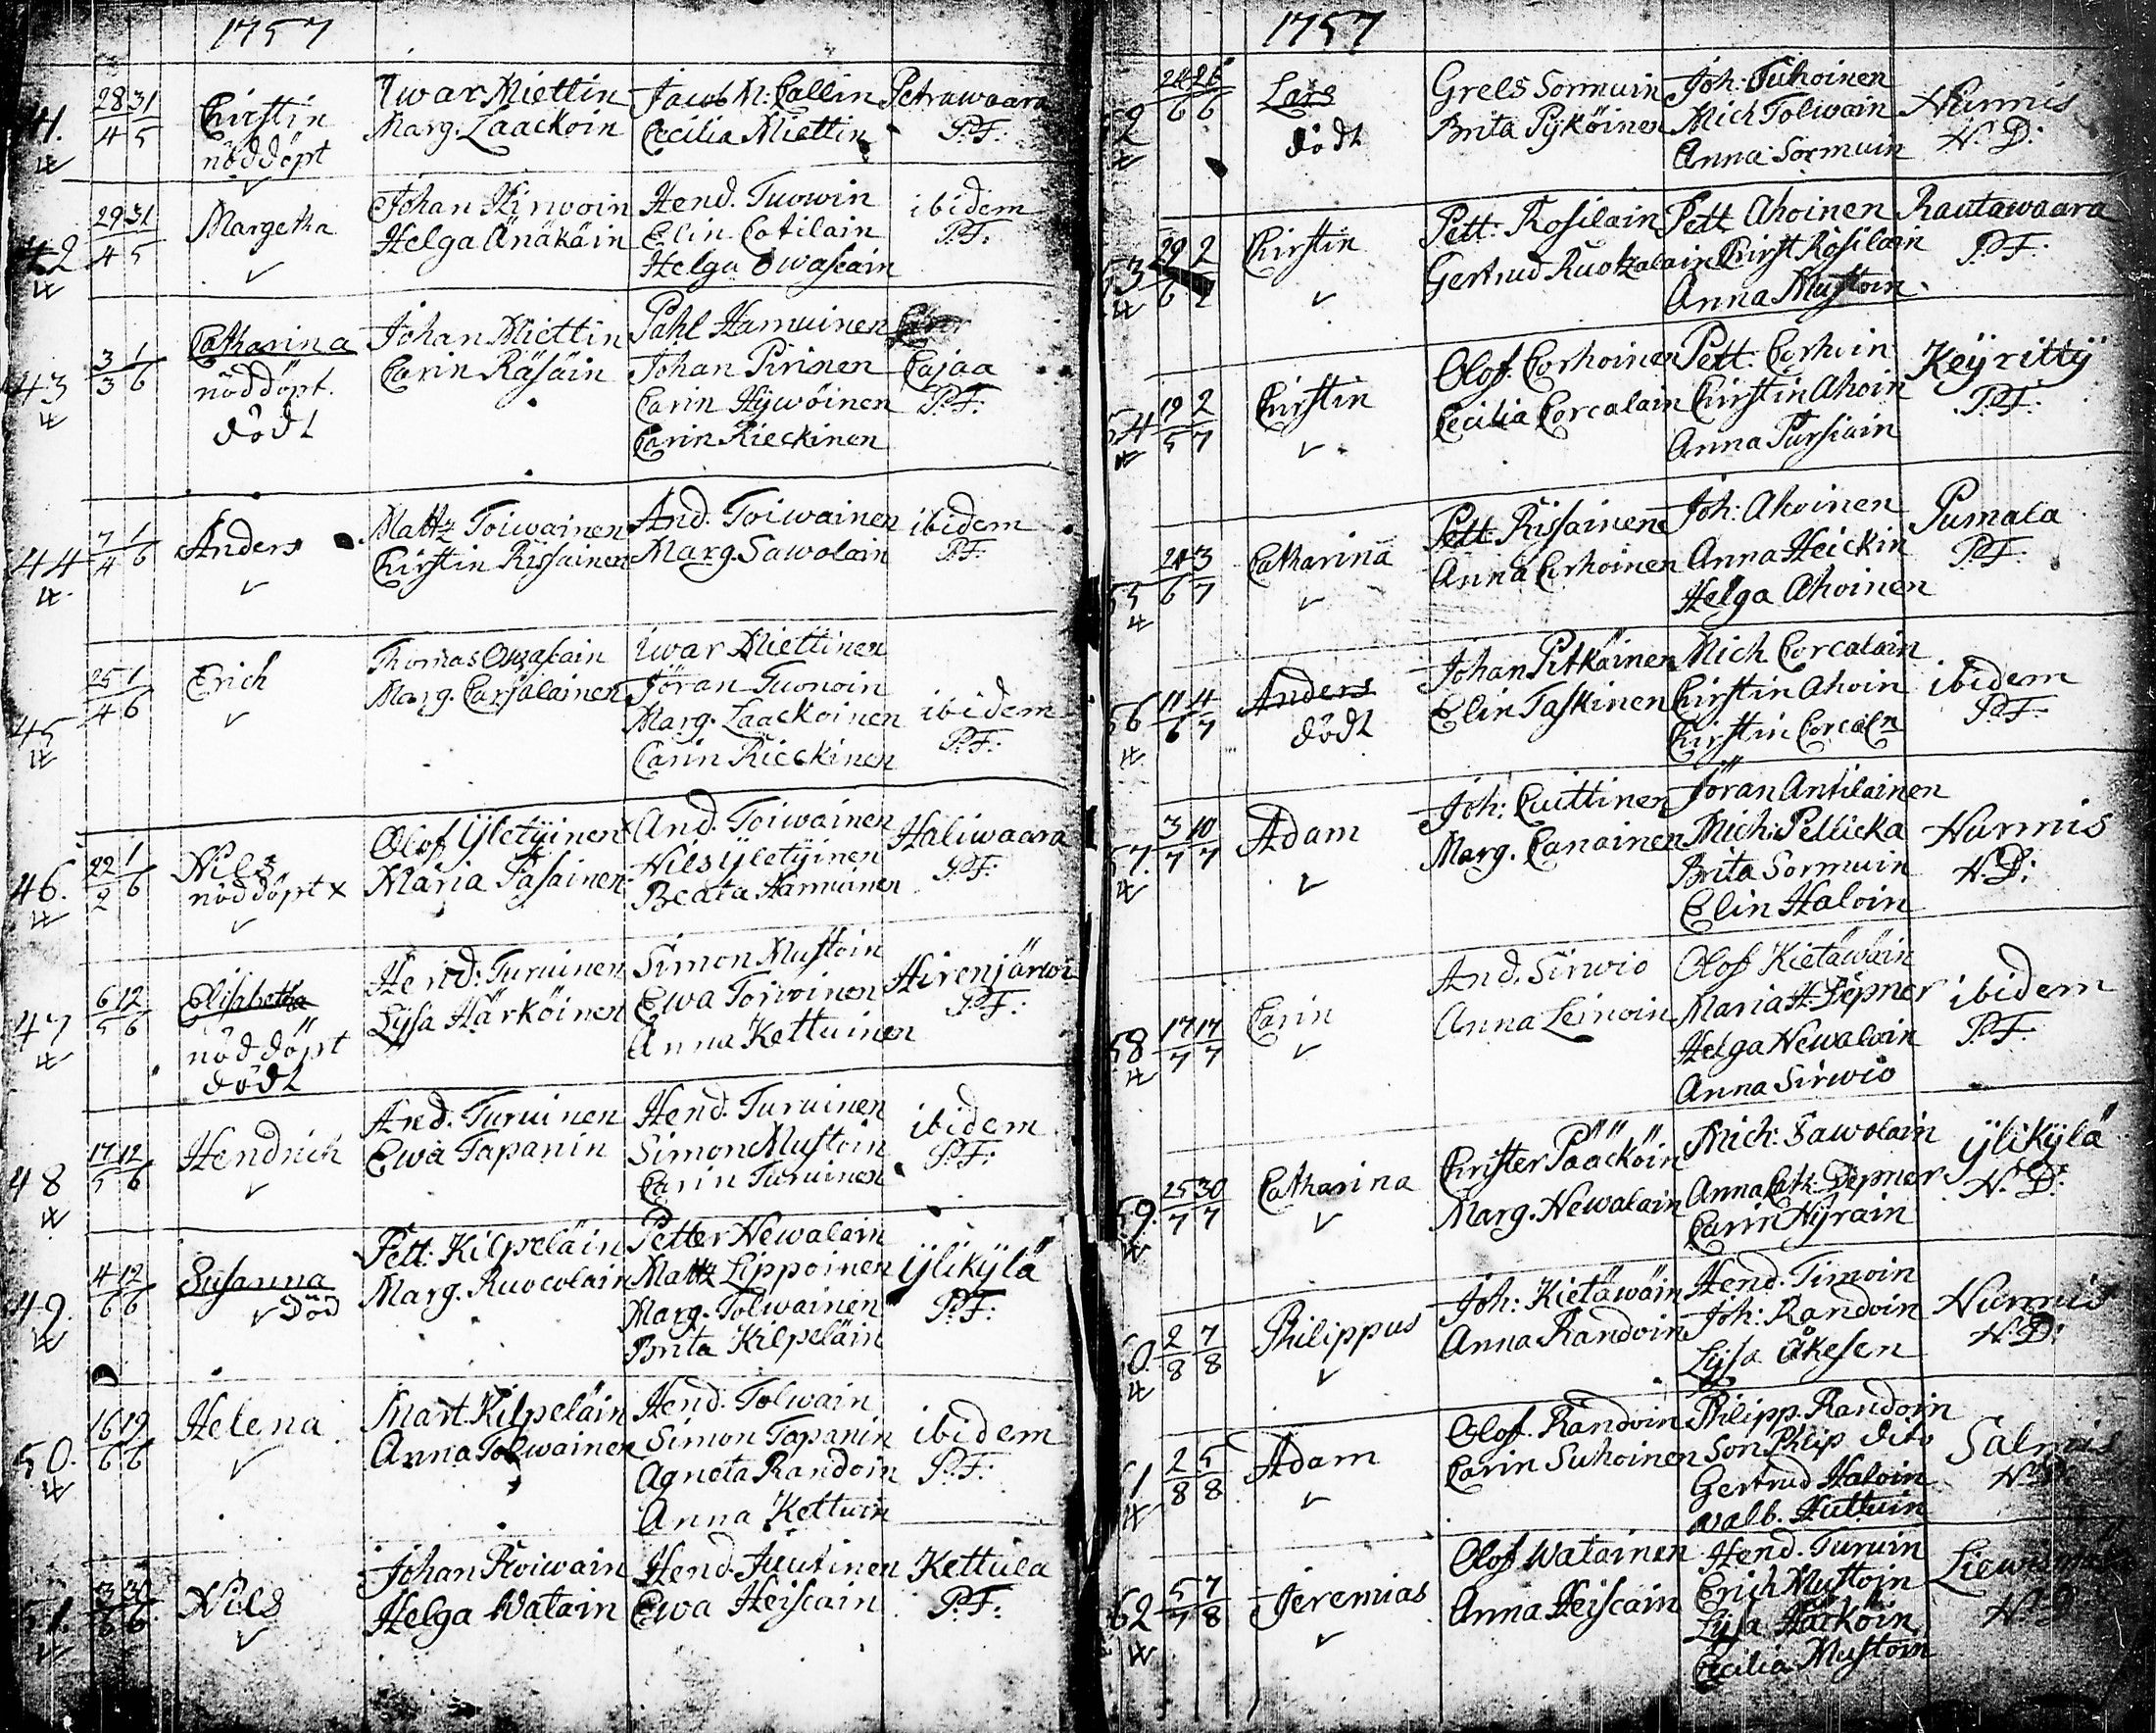 1757
41.
28 31
4 5
Chirstin
nöddöpt
Iwar Miettin
Marg. Laackoin
Jacob M: Callin
Cecilia Miettin
Petrawaara
P.F:
42
29 31
4 5
Margetha
Johan Hirwoin
Helga Änäkäin
Hend. Tuowin
Elin Cotilain
Helga Owascain
ibidem
P.F:
43
3 1
3 6
Catharina
nöddöpt.
dödt
Johan Miettin
Carin Räsäin
Pahl Hamuinen
Johan Pirinen
Carin Hywöinen
Carin Rieckinen
Cajaa
P.F:
44
7 1
4 6
Anders
Mattz Toiwainen
Chirstin Rissainen
And. Toiwainen
Marg. Sawolain
ibidem
P.F:
45
25 1
4 6
Erich
Thomas
Marg. Carjalainen
Iwar Miettinen
Jöran Tuonoin
Marg. Laackoinen
Carin Rieckinen
ibidem
P.F:
46.
22 1
2 6
Nils
nöddöpt x
Olof Yletyinen
Maria Pasainen
And. Toiwainen
Nils Yletyinen
Beata Hamuinen
Haliwaara
P.F:
47
6 12
5 6
Elisbetha
nöddöpt
dödt
Hend: Turuinen
Lysa Härköinen
Simon Mustoin
Ewa Toiwoinen
Anna Kettuinen
Hirenjärwi
P.F:
48
17 12
5 6
Hendrich
And. Turuinen
Ewa Tapanin
Hend. Turuinen
Simon Mustoin
Carin Turuinen
ibidem
P.F:
49.
4 12
6 6
Susanna
Död
Pett: Kilpeläin
Marg. Ruocolain
Petter Newalain
Mattz Lippoinen
Marg. Tolwainen
Brita Kilpeläin
Ylikylä
P.F:
50.
16 19
6 6
Helena
Mart. Kilpeläin
Anna Tolwainen
Hend. Tolwain
Simon Tapanin
Agneta Randoin
Anna Kettuin
ibidem
P.F:
51.
3 30
6 6
Nils
Johan Roiwain
Helga Watain
Hend. Juutinen
Ewa Heiscain
Kettula
P.F:
1757
52
24 26
6 6
Lars
dödt
Grels Sormuin
Brita Pyköinen
Joh: Tuhoinen
Mich Tolwain
Anna Sormuin
Nurmis
N. D:
53
29 2
6 7
Chirstin
Pett: Rosilain
Gertrud Ruotzalain
Pett Ahoinen
Chirst Rosilain
Anna Mustoin
Rautawaara
P.F:
54
19 2
5 7
Chirstin
Olof Corhoinen
Cecilia Corcalain
Pett. Corhoin
Chirstin Ahoin
Anna Pursiain
Keyritty
P.F:
55
24 3
6 7
Catharina
Pett Rissainen
Anna Corhoinen
Joh: Ahoinen
Anna Heickin
Helga Ahoinen
Pumala
P.F:
56
11 4
6 7
Anders
dödt
Johan Pitkäinen
Elin Taskinen
Mich Corcalain
Chirstin Ahoin
Chirstin Corcaln
ibidem
P.F:
57.
3 10
7 7
Adam
Joh: Cuittinen
Marg. Canainen
Jöran Antilainen
Mich: Pellicka
Brita Sormuin
Elin Haloin
Nurmis
N. D:
58
17 17
7 7
Carin
And. Sirwio
Anna Leinoin
Olof Kietäwäin
Maria H. Depner
Helga Newalain
Anna Sirwio
ibidem
P.F:
59.
25 30
7 7
Catharina
Christer Pääcköin
Marg. Newalain
Mich: Sawolain
Anna Cath. Depner
Carin Nyrain
Ylikylä
N. D:
60.
2 7
8 8
Philippus
Joh: Kietäwäin
Anna Randoin
Hend. Timoin
Joh: Randoin
Lysa Åkesen
Nurmis
N. D:
61
2 5
8 8
Adam
Olof. Randoin
Carin Suhoinen
Philipp. Randoin
Son Philip dito
Gertrud Haloin
Walb. Huttuin
Salmis
62
5 7
7 8
Jeremias
Olof Watainen
Anna Heiscain
Hend. Turuin
Erich Mustoin
Lysa Härköin
Cecilia Mustoin